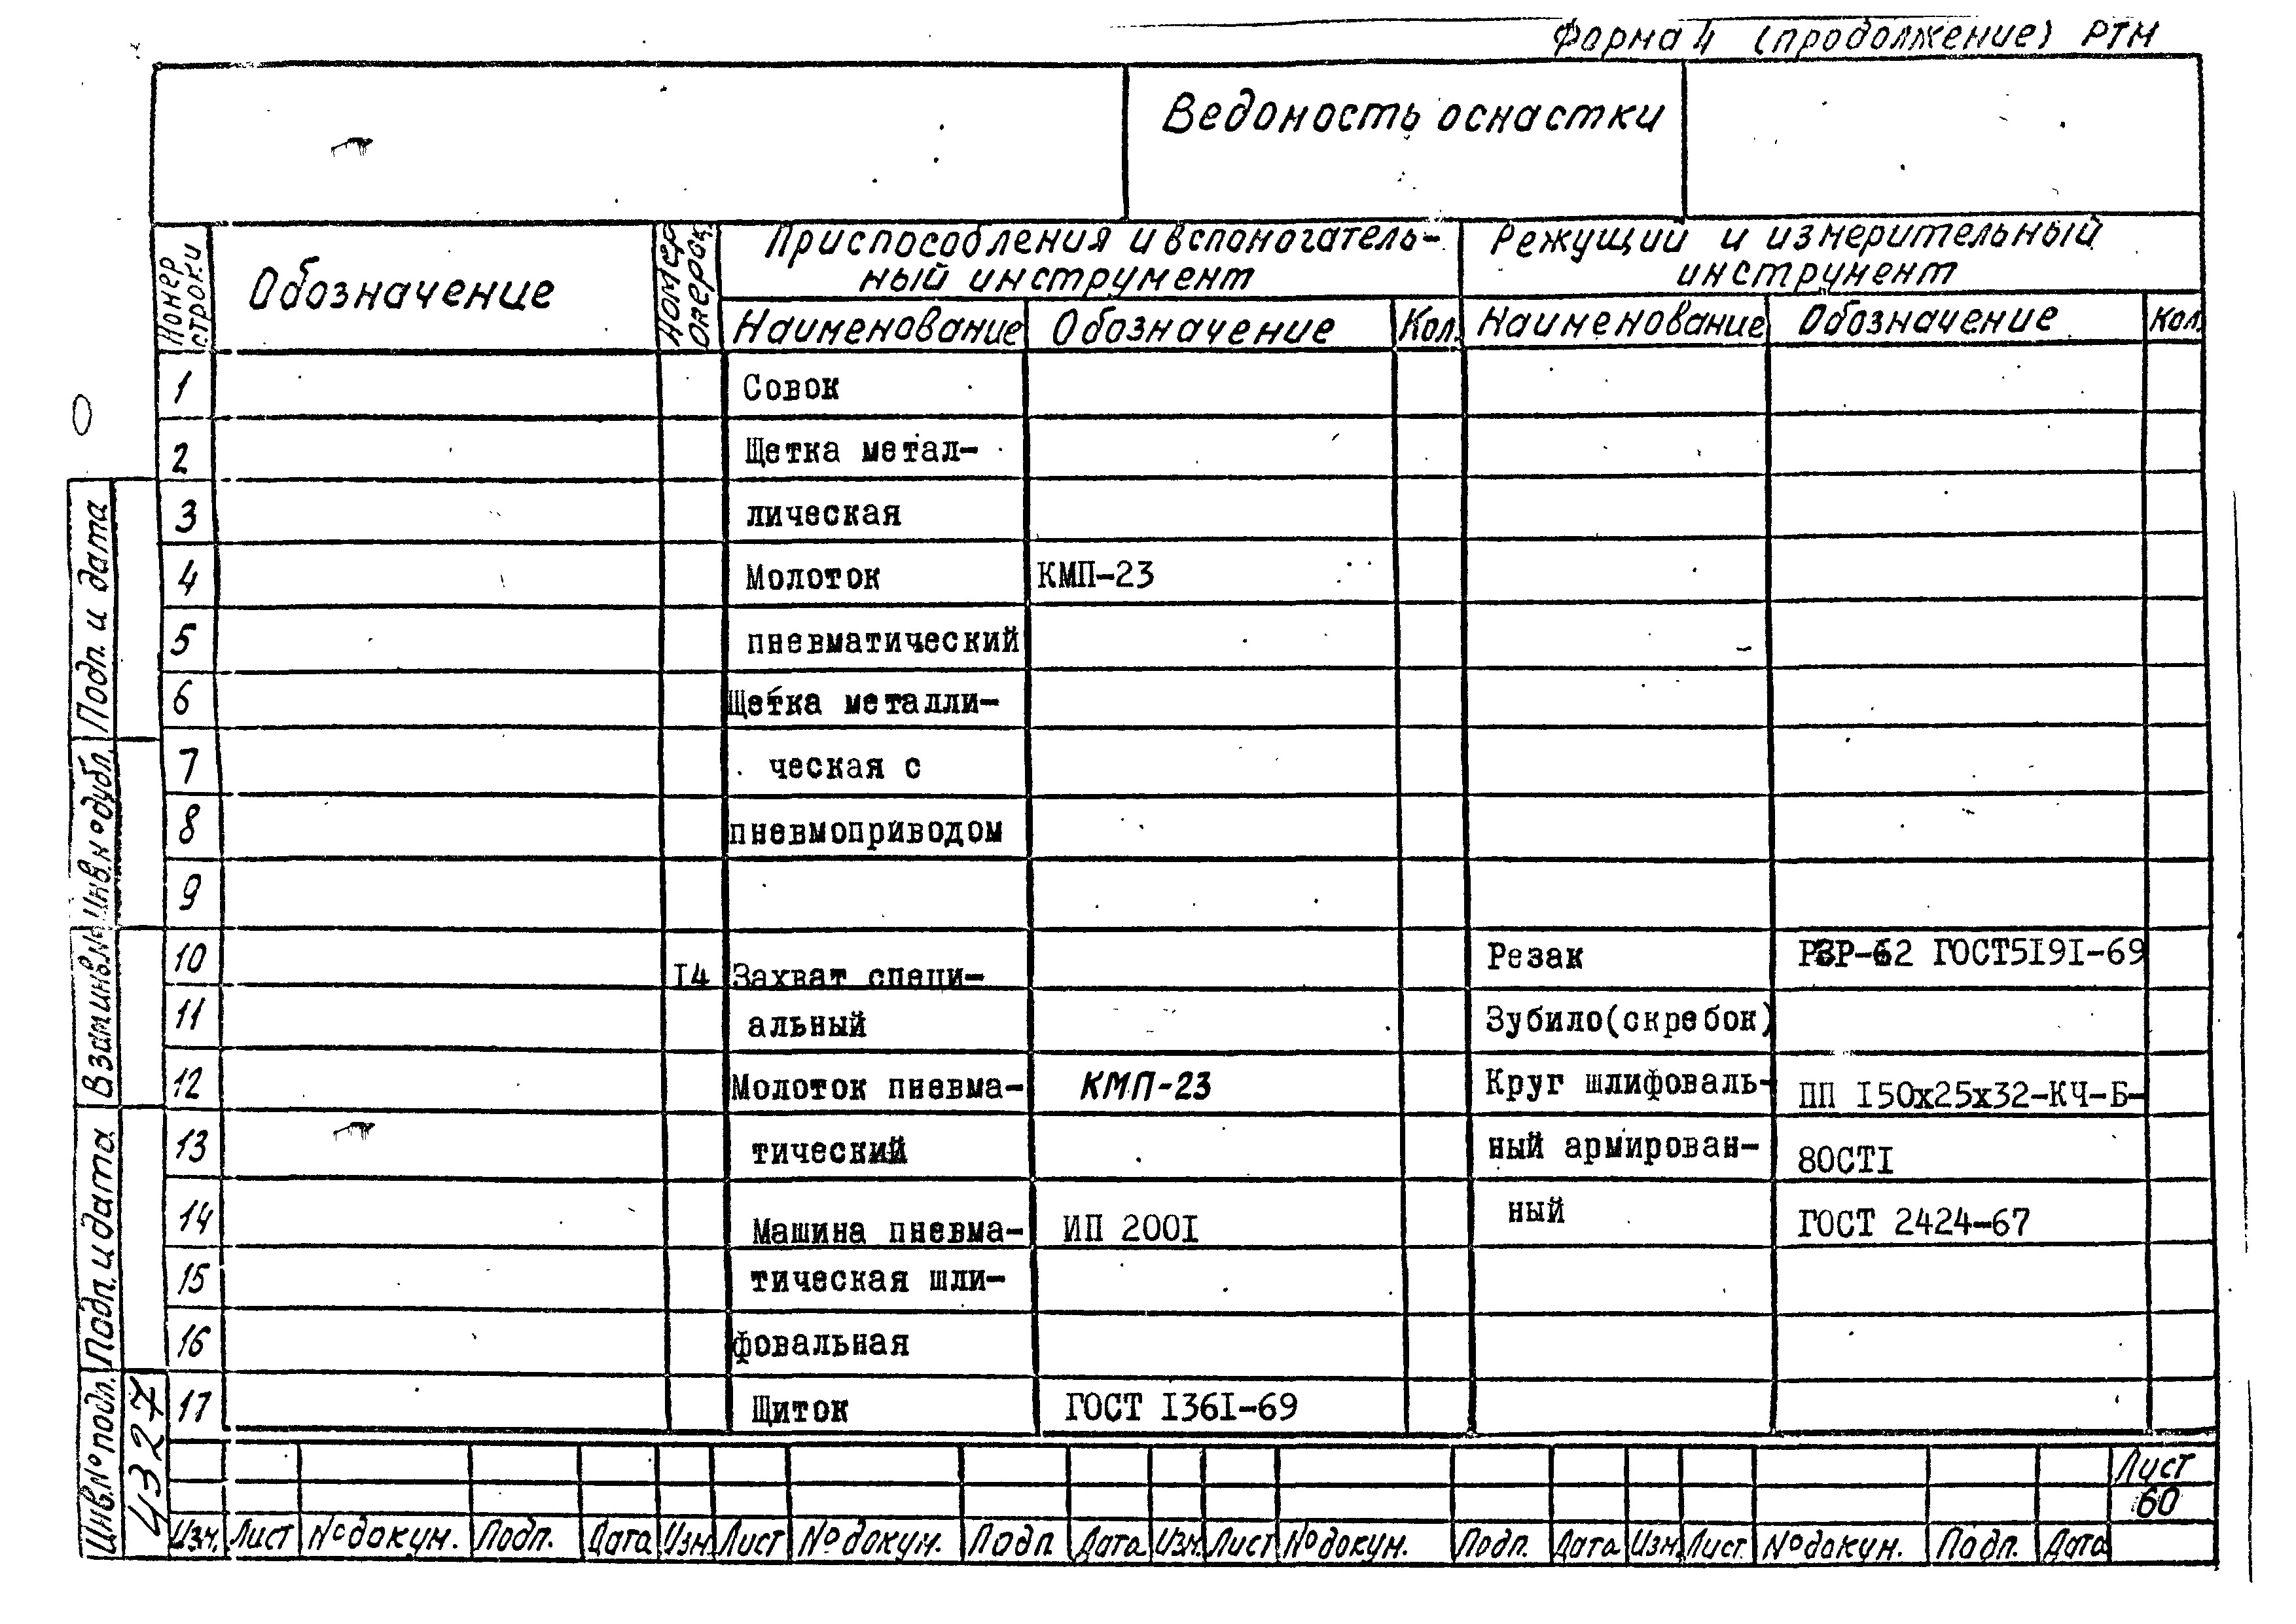 Форма 4 (продолжение) РТМ
Ведомость оснастки
Номер строки
Обозначение
Номер операц.
Приспособления и вспомогатель-
ный инструмент
Режущий и измерительный
инструмент
Наименование Обозначение Кол. Наименование Обозначение Кол.
1 Совок
2 Щетка метал-
3 лическая
4 Молоток КМП-23
5 пневматический
6 Щетка металли-
7 ческая с
8 пневмоприводом
9
10 I4 Захват специ- Резак РЗР-62 ГОСТ5I9I-69
11 альный Зубило(скребок)
12 Молоток пневма- КМП-23 Круг шлифоваль- ПП I50х25х32-КЧ-Б-
13 тический ный армирован- 80СТI
14 Машина пневма- ИП 200I ный ГОСТ 2424-67
15 тическая шли-
16 фовальная
17 Щиток ГОСТ I36I-69
Лист
60
Изм. Лист № докум. Подп. Дата Изм. Лист № докум. Подп. Дата Изм. Лист № докум. Подп. Дата Изм. Лист № докум. Подп. Дата
Подп. и дата
Инв. № дубл.
Взам. инв. №
Подп. и дата
Инв. № подл.
4327